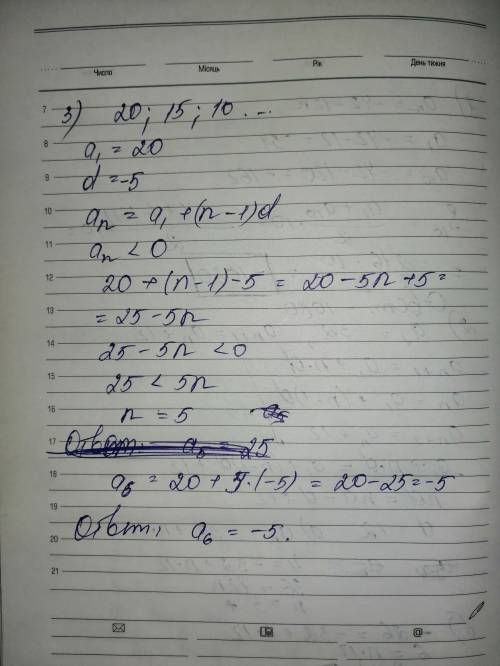 Число Місяць Рік День тижня
7 3) 20; 15; 10 ...
8 a₁ = 20
9 d = -5
10 aₙ = a₁ + (n - 1)d
11 aₙ < 0
12 20 + (n - 1) - 5 = 20 - 5n + 5 =
13 = 25 - 5n
14 25 - 5n < 0
15 25 < 5n
16 n = 5
17 Ответ: a₅ = 25
18 a₆ = 20 + 5·(-5) = 20 - 25 = -5
19
20 Ответ: a₆ = -5.
21
@